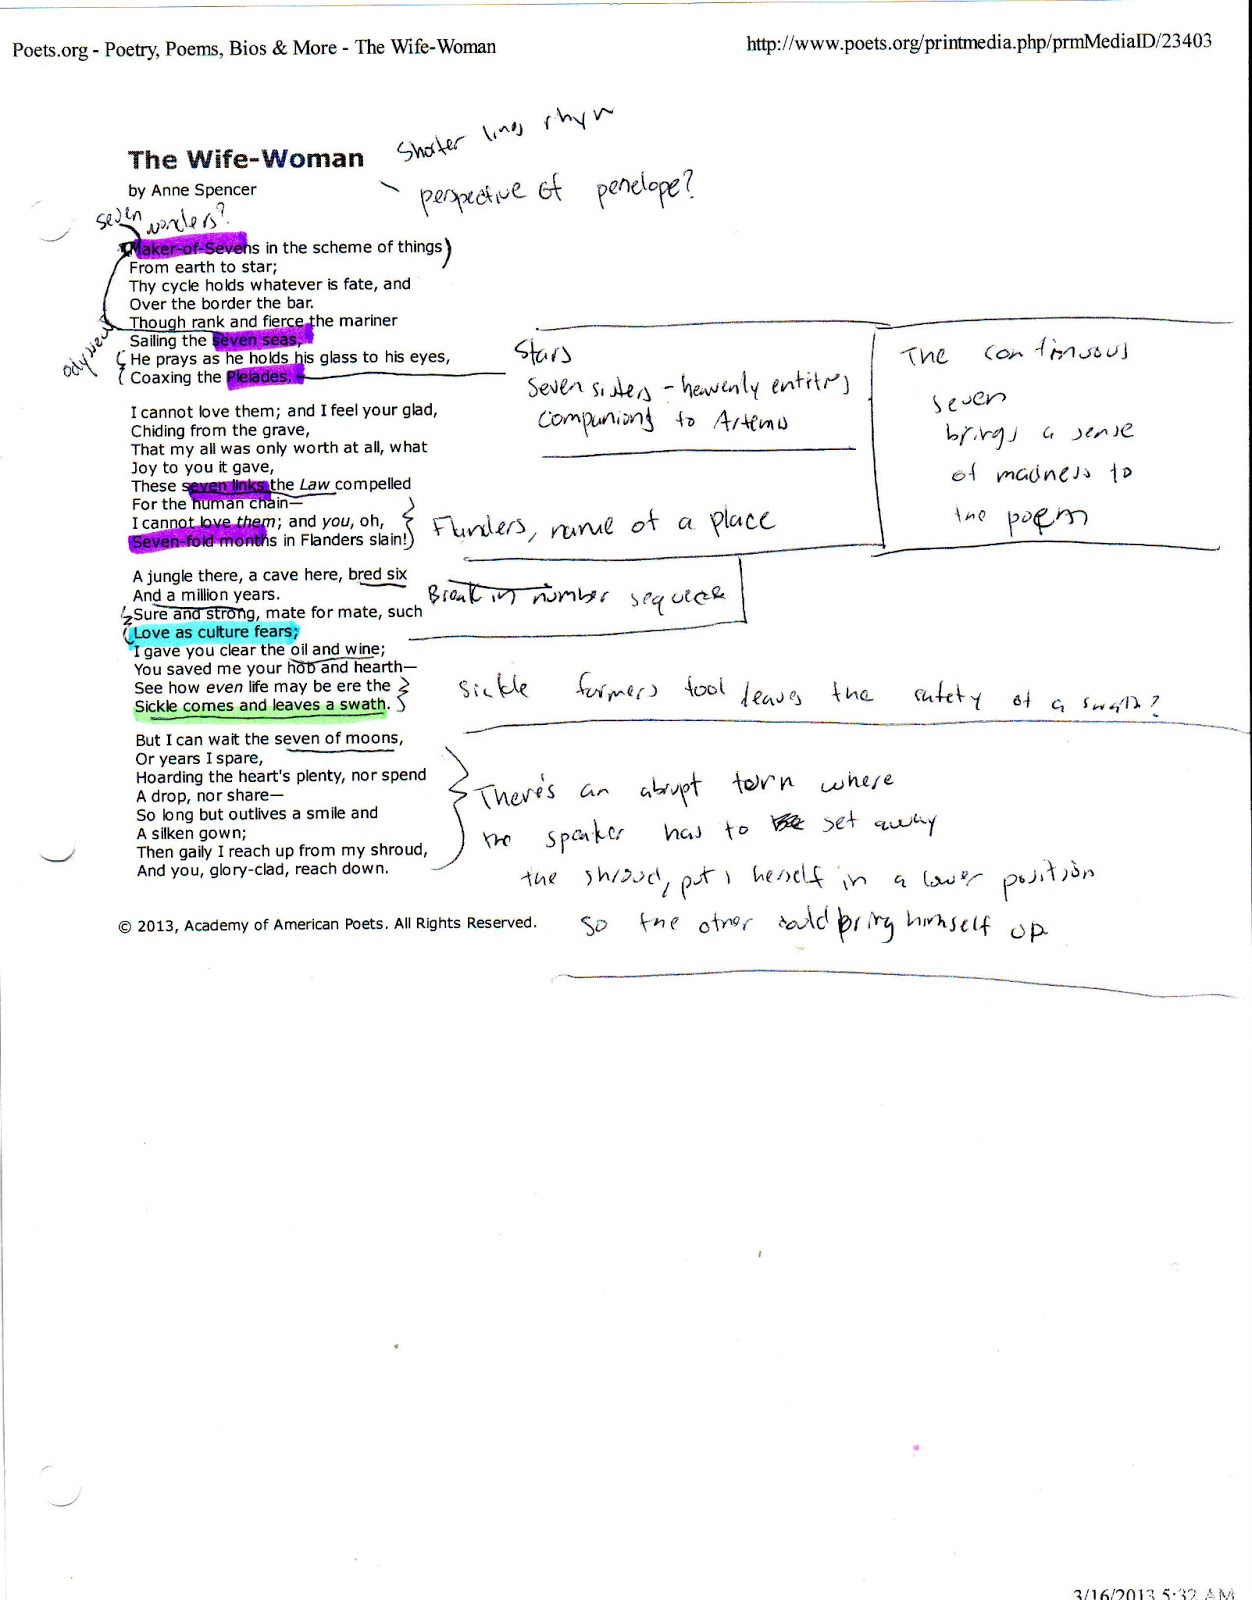 Poets.org - Poetry, Poems, Bios & More - The Wife-Woman
http://www.poets.org/printmedia.php/prmMediaID/23403
Shorter lines rhym
The Wife-Woman
perspective of penelope?
by Anne Spencer
seven wonders?
Maker-of-Sevens in the scheme of things
From earth to star;
Thy cycle holds whatever is fate, and
Over the border the bar.
Though rank and fierce the mariner
Sailing the seven seas,
He prays as he holds his glass to his eyes,
Coaxing the Pleiades.
Stars
Seven sisters - heavenly entities
companions to Artemis
The continuous
seven
brings a sense
of madness to
the poem
I cannot love them; and I feel your glad,
Chiding from the grave,
That my all was only worth at all, what
Joy to you it gave,
These seven links the Law compelled
For the human chain—
I cannot love them; and you, oh,
Seven-fold months in Flanders slain!
Flunders, name of a place
A jungle there, a cave here, bred six
And a million years.
Sure and strong, mate for mate, such
Love as culture fears;
I gave you clear the oil and wine;
You saved me your hob and hearth—
See how even life may be ere the
Sickle comes and leaves a swath.
Break in number sequence
Sickle farmers tool leaves the safety of a swath?
But I can wait the seven of moons,
Or years I spare,
Hoarding the heart's plenty, nor spend
A drop, nor share—
So long but outlives a smile and
A silken gown;
Then gaily I reach up from my shroud,
And you, glory-clad, reach down.
There's an abrupt turn where
the speaker has to set away
the shroud, puts herself in a lower position
so the other could bring himself up
© 2013, Academy of American Poets. All Rights Reserved.
3/16/2013 5:32 AM